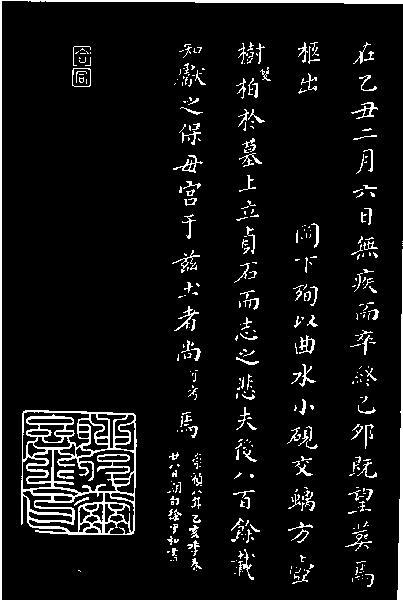 在乙丑二月六日無疾而卒終己卯既望葬焉
柩出　　岡下殉以曲水小硯交螭方壺
樹雙柏於墓上立貞石而志之悲夫後八百餘載
知獻之保母宮于茲土者尚可考焉
崇禎八年乙亥季春
廿八日徐守和
合同